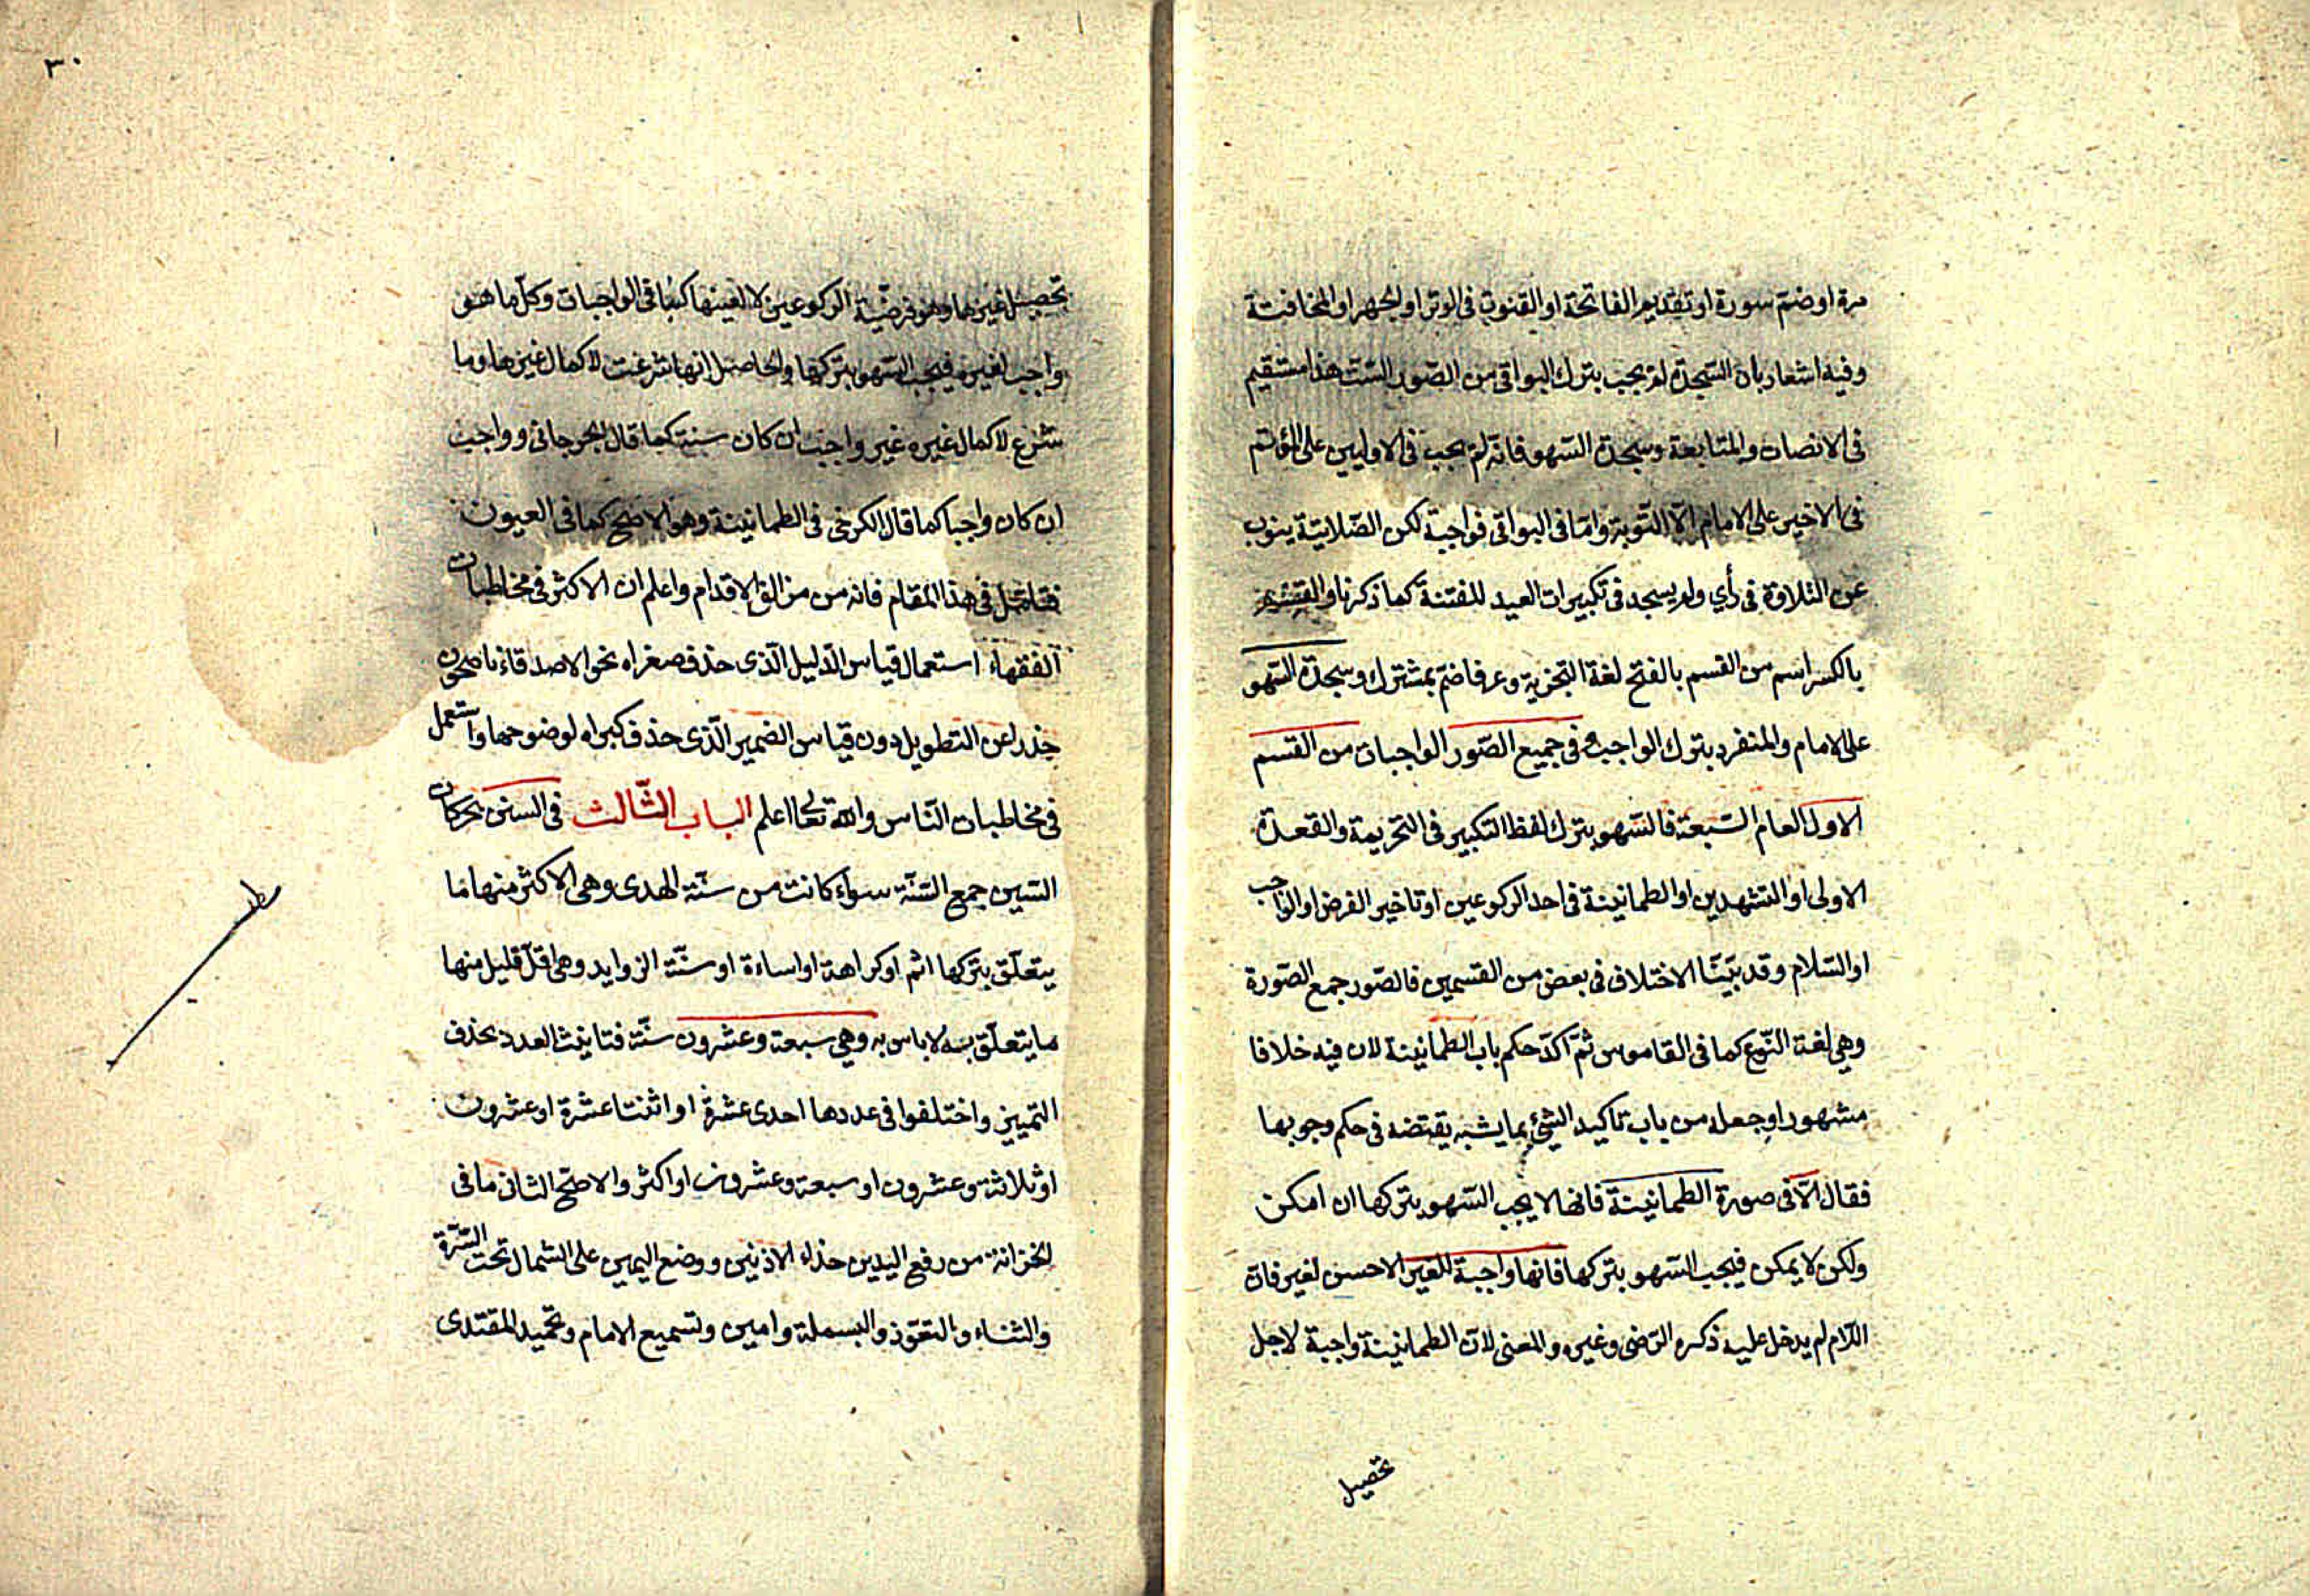 مرة او ضم سورة او تقديم الفاتحة او القنوت فى الوتر او الجهر او المخافتة
وفيه اشعار بان السجدة لم يجب بترك البواقى من الصور الست هذا مستقيم
فى الانصات والمتابعة وسجدة السهو فانه لم يجب فى الاوليين على المؤتم
فى الاخير على الامام الا التوبة واما فى البواقى فواجبة لكن الصلاتية ينوب
عن التلاوة فى رأي ولم يسجد فى تكبيرات العيد للفتنة كما ذكرنا والقسم
بالكسر اسم من القسم بالفتح لغة التجزية وعرفا ضم بمشترك وسجدة السهو
على الامام والمنفرد بترك الواجب فى جميع الصور الواجبات من القسم
الاول العام السبعة فالسهو بترك لفظ التكبير فى التحريمة والقعدة
الاولى او التشهدين او الطمانينة فى احد الركوعين او تاخير الفرض او الواجب
او السلام وقد بيّنّا الاختلاف فى بعض من القسمين فالصّور جمع الصّورة
وهى لغة النّوع كما فى القاموس ثمّ اكدّ حكم باب الطمانينة لان فيه خلافا
مشهورا وجعله من باب تاكيد الشئ بما يشبه يقتضه فى حكم وجوبها
فقال الّا فى صورة الطمانينة فانها لا يجب السّهو بتركها ان امكن
ولكن لا يمكن فيجب السّهو بتركها فانها واجبة للغير الاحسن لغير فان
اللّام لم يدخل عليه ذكره الرّضى وغيره والمعنى لانّ الطمانينة واجبة لاجل
تحصيل
٣٠
تحصيل غيرها وهو فرضيّة الركوعين لا لعينها كباقى الواجبات وكلّ ما هو
واجب لغيره فيجب السّهو بتركها والحاصل انها شرعت لاكمال غيرها وما
شرع لاكمال غيره غير واجب ان كان سنة كما قال الجرجانى وواجب
ان كان واجبا كما قال الكرخى فى الطمانينة وهو الاصح كما فى العيون
فتامّل فى هذا المقام فانه من مزالق الاقدام واعلم ان الاكثر فى مخاطبات
الفقهاء استعمال قياس الدّليل الّذى حذف صغراه نحو الاصدقاء ناصحون
حذرا عن التطويل دون قياس الضمير الّذى حذف كبراه لوضوحها واستعمل
فى مخاطبات النّاس والله تعالى اعلم الباب الثّالث فى السنن بحركات
السين جمع السّنّة سواء كانت من سنّة الهدى وهى الاكثر منها ما
يتعلّق بتركها اثم او كراهة او اساءة او سنّة الزوايد وهى اقلّ قليل منها
ما يتعلّق به لا باس به وهى سبعة وعشرون سنّة فتانيث العدد بحذف
التمييز واختلفوا فى عددها احدى عشرة او اثنتا عشرة او عشرون
او ثلاثة وعشرون او سبعة وعشرون او اكثر والاصحّ الثانى ما فى
الخزانة من رفع اليدين حذاء الاذنين ووضع اليمين على الشمال تحت السّرّة
والثناء والتعوّذ والبسملة وامين وتسميع الامام وتحميد المقتدى